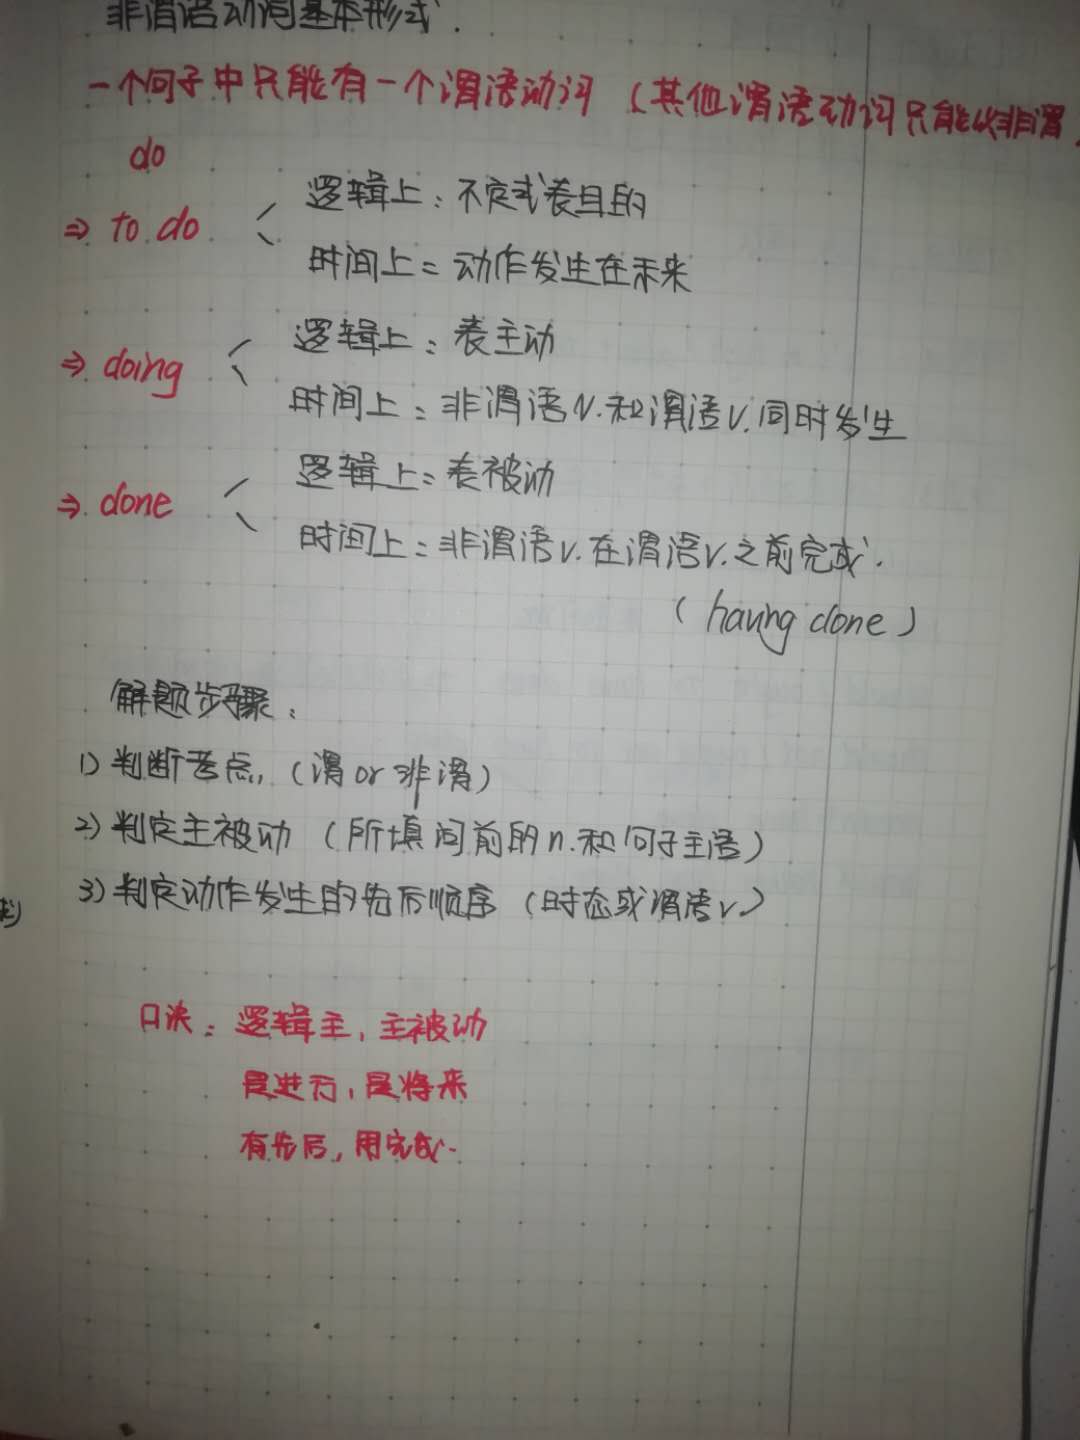 非谓语动词基本形式.
一个句子中只能有一个谓语动词（其他谓语动词只能以非谓
do
⇒ to do
逻辑上：不定式表目的
时间上：动作发生在未来
⇒ doing
逻辑上：表主动
时间上：非谓语V.和谓语V.同时发生
⇒ done
逻辑上：表被动
时间上：非谓语V.在谓语V.之前完成.
（having done）
解题步骤：
1）判断考点,（谓 or 非谓）
2）判定主被动（所填词前的n.和句子主语）
3）判定动作发生的先后顺序（时态或谓语V.）
口决：逻辑主，主被动
是进行，是将来
有先后，用完成.